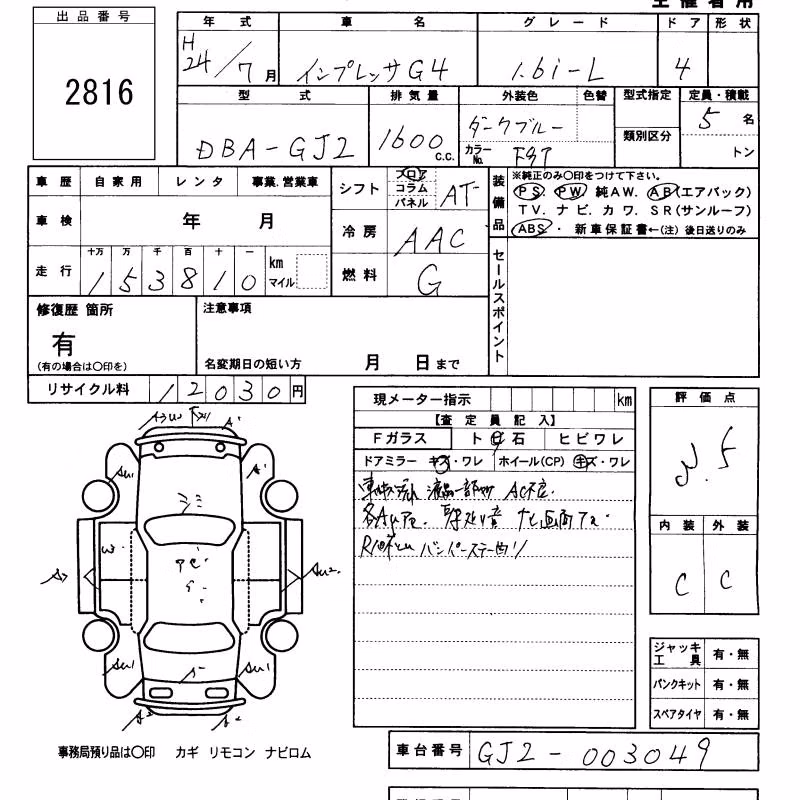 主催者用
出品番号
2816
年式 車名 グレード ドア 形状
H24/7月 インプレッサG4 1.6i-L 4
型式 排気量 外装色 色替 型式指定 定員・積載
DBA-GJ2 1600 c.c. ダークブルー 類別区分 5名
カラーNo. トン
車歴 自家用 レンタ 事業.営業車
シフト フロア コラム パネル AT
装備品 ※純正のみ〇印をつけて下さい。
PS. PW 純AW. AB(エアバック)
TV. ナビ. カワ. SR(サンルーフ)
ABS・ 新車保証書←(注) 後日送りのみ
車検 年 月
冷房 AAC
走行 十万 万 千 百 十 一
153810 km マイル
燃料 G
セールスポイント
修復歴 箇所
有
(有の場合は〇印を)
注意事項
名変期日の短い方 月 日まで
リサイクル料 12030円
現メーター指示 km
【査定員記入】
Fガラス ト 石 ヒビワレ
ドアミラー キズ・ワレ ホイール(CP) キズ・ワレ
バンパーステー曲り
評価点
内装 外装
C C
A W A
AU1 A
W
A AU2
AU1 AU1
A A
ジャッキ工具 有・無
パンクキット 有・無
スペアタイヤ 有・無
事務局預り品は〇印 カギ リモコン ナビロム
車台番号 GJ2-003049